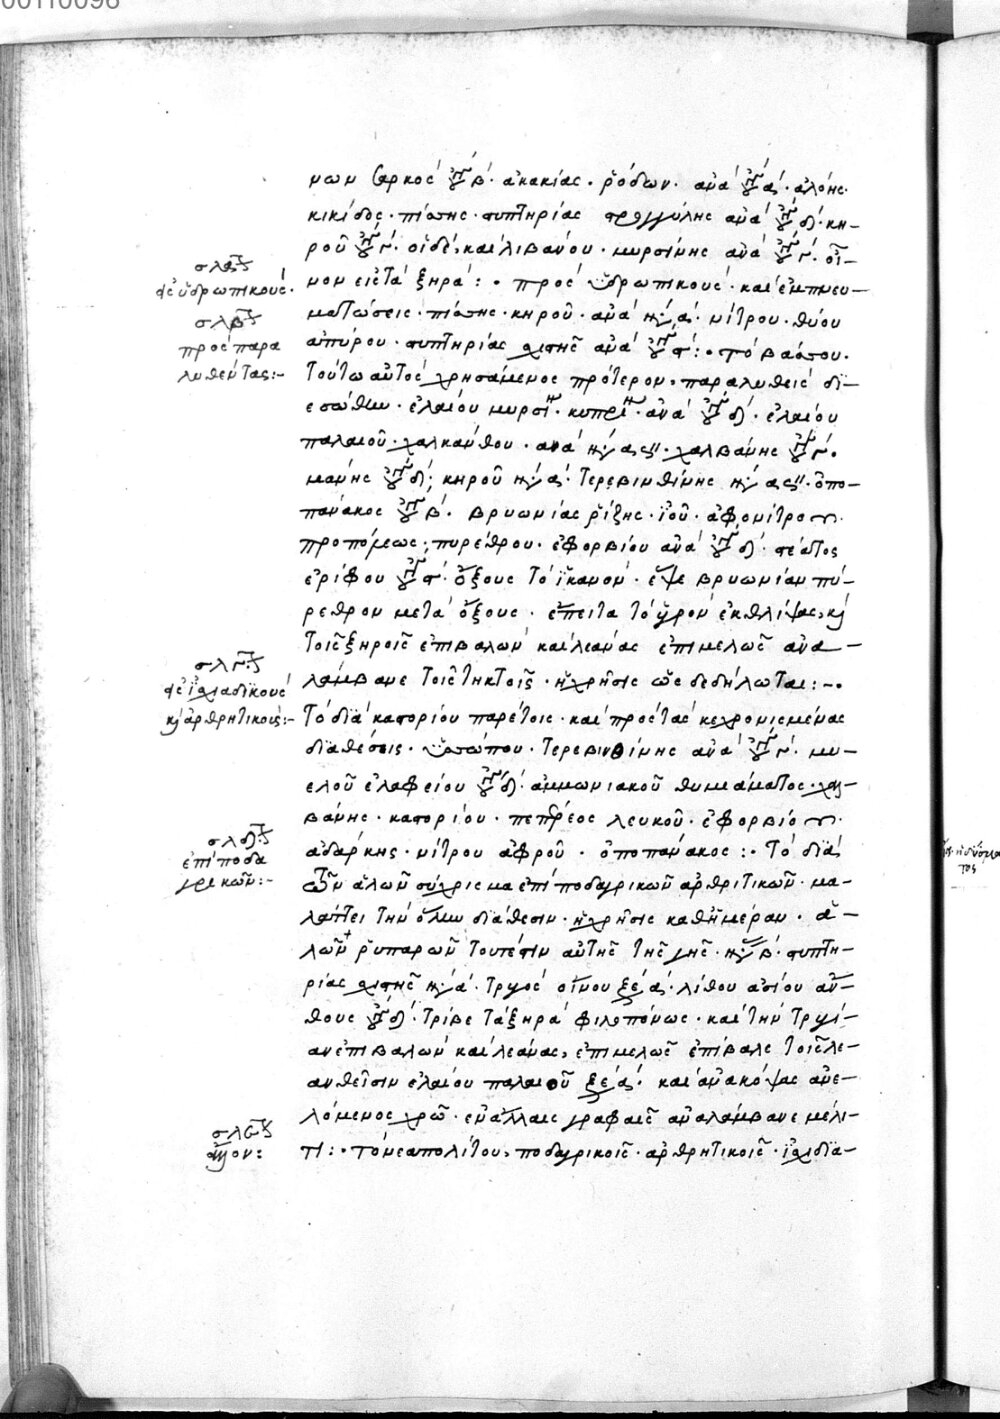 00110098
μων σαρκὸς γο β· ἀκακίας· ῥόδων· ἀνὰ γο α· ἀλόης·
κικίδος· πίσσης· στυπτηρίας στρογγύλης ἀνὰ γο δ· κη-
ροῦ γο γ· οἱ δὲ, καὶ λιβάνου· μυρσίνης ἀνὰ γο γ· οἶ-
νον εἰς τὰ ξηρά:· πρὸς ὑδρωπικοὺς· καὶ ἐμπνευ-
ματώσεις· πίσσης· κηροῦ· ἀνὰ α· νίτρου· θείου
ἀπύρου· στυπτηρίας σχιστῆς ἀνὰ γο:· τὸ βαρου·
τούτω αὐτὸς χρησάμενος πρότερον· παραλυθεὶς δι-
εσώθην· ἐλαίου μυρσι· κυπρι· ἀνὰ γο δ· ἐλαίου
παλαιοῦ· χαλκάνθου· ἀνὰ · χαλβάνης γο γ·
μάνης γο δ; κηροῦ α· τερεβινθίνης · ὀπο-
πάνακος γο β· βρυωνίας ῥίζης· ἰοῦ· ἀφρονίτρου·
προπόλεως; πυρέθρου· εὐφορβίου ἀνὰ γο δ· στέατος
ἐρίφου γο· ὄξους τὸ ἱκανόν· ἕψε βρυωνίαν πύ-
ρεθρον μετὰ ὄξους· ἔπειτα τὸ ὑγρὸν ἐκθλίψας, κὶ
τοῖς ξηροῖς ἐπιβαλὼν καὶ λεάνας ἐπιμελῶς ἀνα-
λάμβανε τοῖς τηκτοῖς· ἡ χρῆσις ὡς δεδήλωται:-·
τὸ διὰ καστορίου παρέτοις· καὶ πρὸς τὰς κεχρονισμένας
διαθέσεις· ὑσσώπου· τερεβινθίνης ἀνὰ γο γ· μυ-
ελοῦ ἐλαφείου γο δ· ἀμμωνιακοῦ θυμιάματος· χαλ-
βάνης· καστορίου· πεπέρεος λευκοῦ· εὐφορβίου·
ἀδάρκης· νίτρου ἀφροῦ· ὀποπάνακος:· τὸ διὰ
τῶν ἁλῶν σύχρισμα ἐπὶ ποδαγρικῶν ἀρθριτικῶν· μα-
λάττει τὴν ὅλην διάθεσιν· ἡ χρῆσις καθ' ἡμέραν· ἁ-
λῶν ῥυπαρῶν τουτέστιν αὐτῆς τῆς γῆς· β· στυπτη-
ρίας σχιστῆς α· τρυγὸς οἴνου ξε α· λίθου ἀσίου ἄν-
θους γο δ· τρίβε τὰ ξηρὰ φιλοπόνως· καὶ τὴν τρυγί-
αν ἐπιβαλὼν καὶ λεάνας, ἐπιμελῶς ἐπίβαλε τοῖς λε-
ανθεῖσιν ἐλαίου παλαιοῦ ξε α· καὶ ἀνακόψας ἀνε-
λόμενος χρῶ· ἐν ἄλλαις γραφαῖς ἀναλάμβανε μέλι-
τι:· τὸ νεαπολίτου, ποδαγρικοῖς· ἀρθρητικοῖς· ἰσχιδϊα-
σλα
πρὸς ὑδρωπικούς·
σλβ
πρὸς παρα
λυθέντας:-
σλγ
πρὸς ἰσχιαδικοὺς
κὶ ἀρθρητικοὺς:-
σλδ
ἐπὶ ποδα
γρικῶν:-
σλε
ἄλλον: